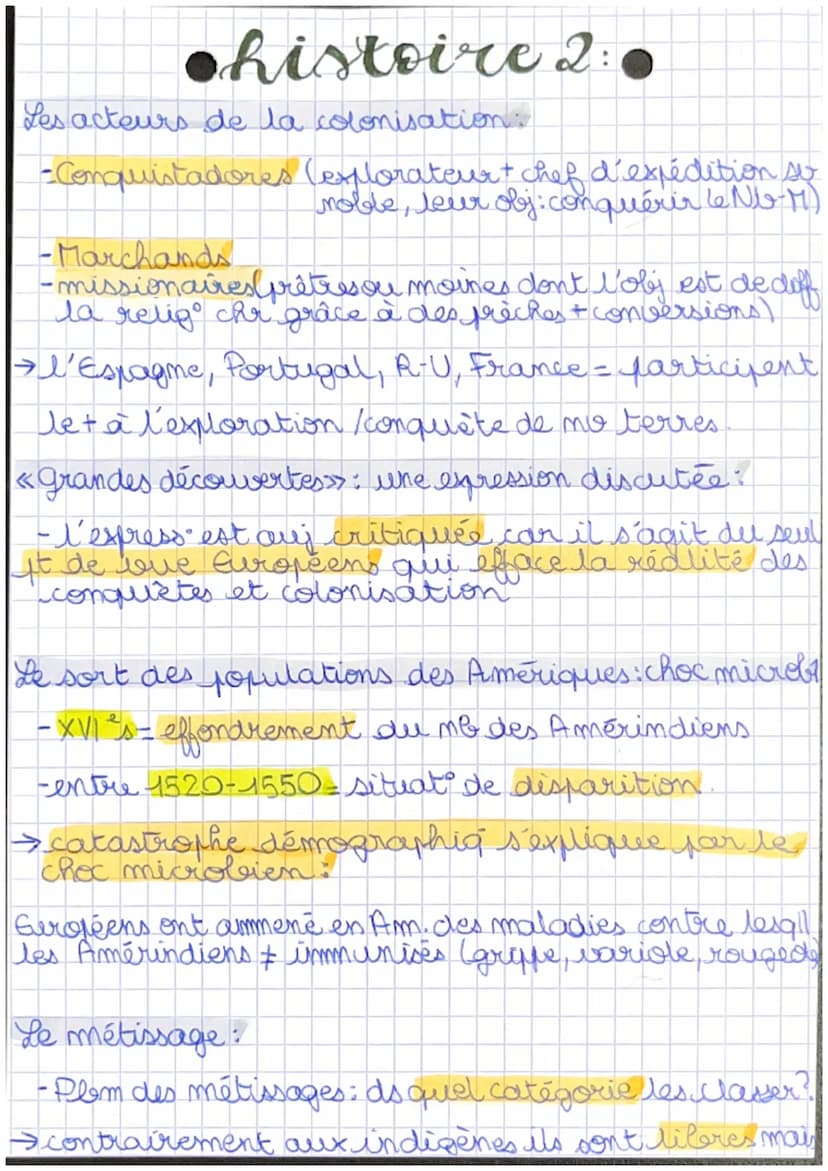 histoire 2:
Les acteurs de la colonisation:
-Conquistadores (explorateur + chef d'expédition sv
noble, leur obj: conquérir le Nv-M)
-Marchands
-missionaires (prêtres ou moines dont l'obj est de diff
la relig° chr grâce à des prèches + conversions)
→ l'Espagne, Portugal, R-U, France = participent
le + à l'exploration /conquête de nv terres.
«Grandes découvertes»: une expression discutée:
-l'express° est auj critiquée car il s'agit du seul
pt de vue Européens qui efface la réalité des
conquêtes et colonisation
Le sort des populations des Amériques: choc microb
- XVIe s = effondrement du nb des Amérindiens
-entre 1520-1550 = situat° de disparition.
→ catastrophe démographiq s'explique par le
choc microbien:
Européens ont ammené en Am. des maladies contre lesqll
les Amérindiens ≠ immunisés (grippe, variole, rougeole
Le métissage:
-Plbm des métissages: ds quel catégorie les classer?
→ contrairement aux indigènes ils sont libres mais